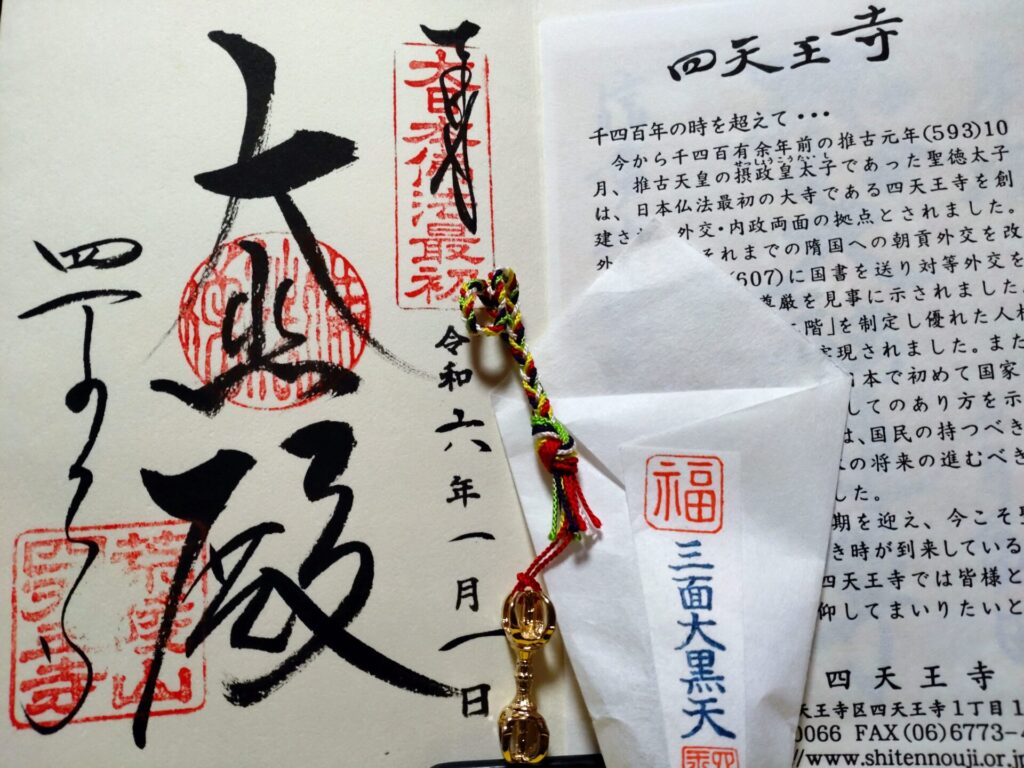 奉拝
大日本佛法最初
令和六年一月一日
大黒殿
四天王寺
荒陵山
四天王寺
四天王寺
千四百年の時を超えて・・・
今から千四百有余年前の推古元年(593)10
せっしょうこうたいし
月、推古天皇の摂政皇太子であった聖徳太子
は、日本仏法最初の大寺である四天王寺を創
建さ 外交・内政両面の拠点とされました。
外 それまでの隋国への朝貢外交を改
(607)に国書を送り対等外交を
尊厳を見事に示されました。
階」を制定し優れた人材
実現されました。また
本で初めて国家
してのあり方を示
は、国民の持つべき
の将来の進むべき
した。
期を迎え、今こそ聖
き時が到来している
四天王寺では皆様と
仰してまいりたいと
四天王寺
天王寺区四天王寺1丁目1
0066 FAX(06)6773-
//www.shitennouji.or.jp
福
三面大黒天